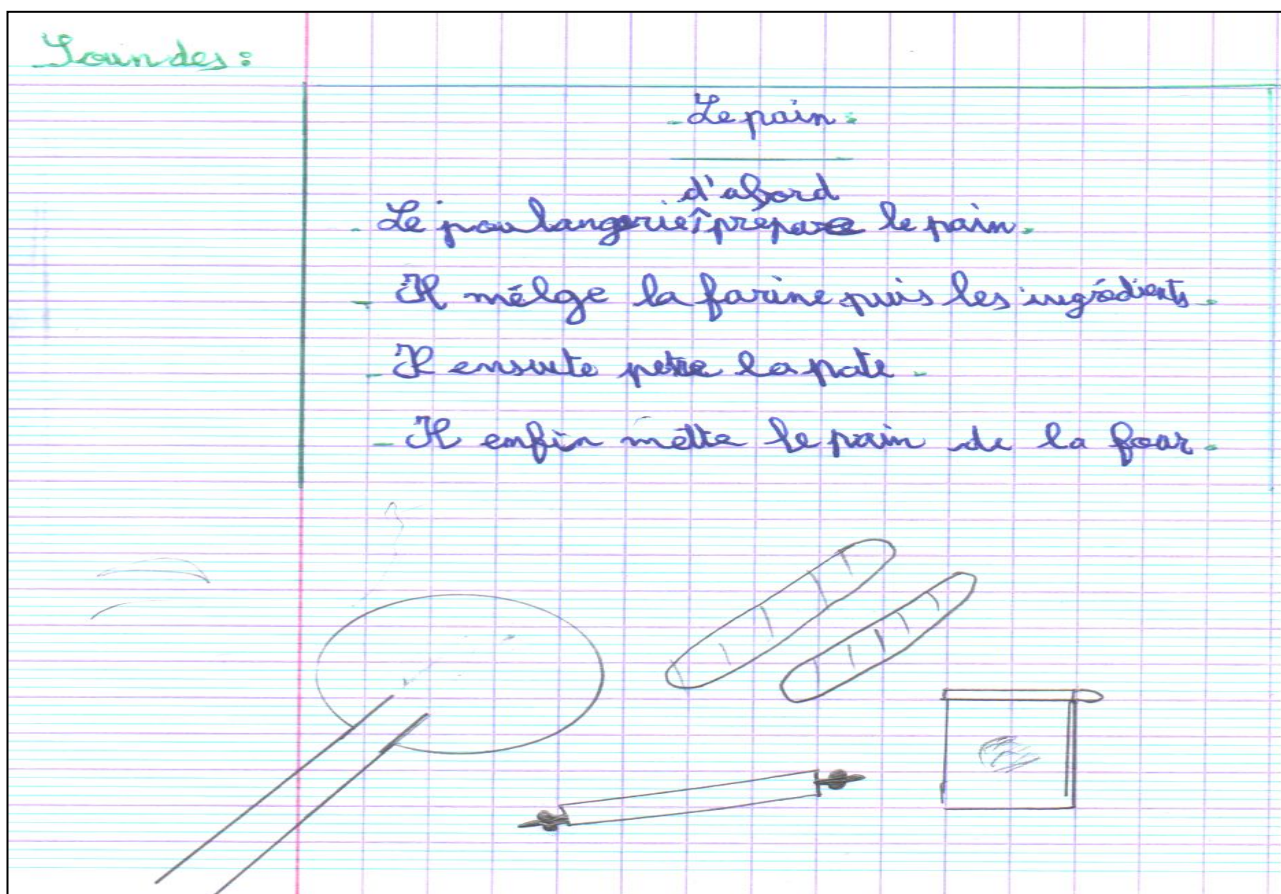 Loundes :
- Le pain .
d'abord
- Le poulangerie prépare le pain.
- Il mélge la farine puis les ingrédients.
- Il ensuite petre la pate.
- Il enfin mette le pain de la four.